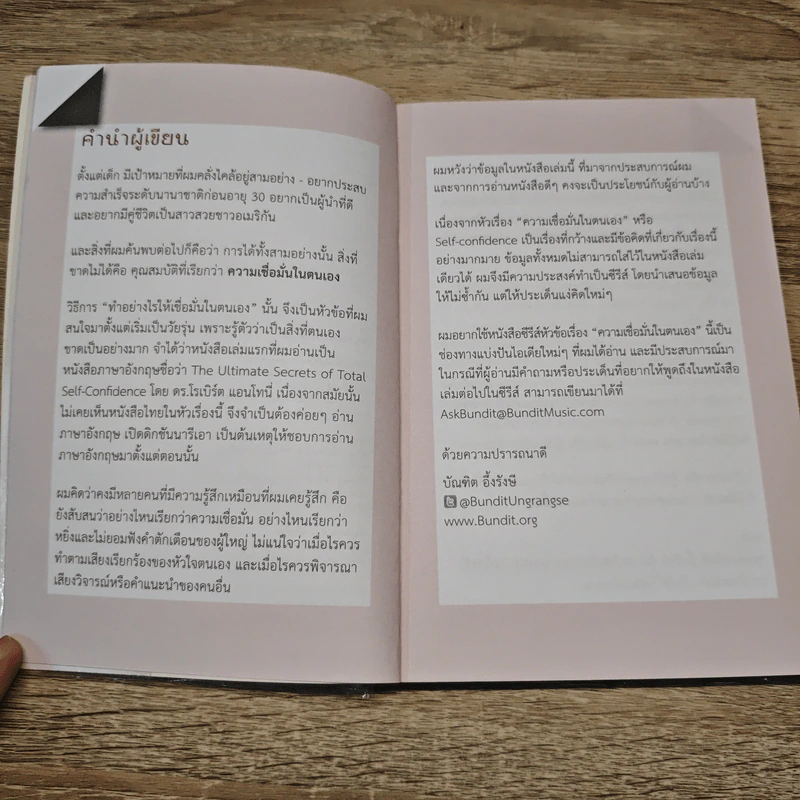 คำนำผู้เขียน
ตั้งแต่เด็ก มีเป้าหมายที่ผมคลั่งไคล้อยู่สามอย่าง - อยากประสบ
ความสำเร็จระดับนานาชาติก่อนอายุ 30 อยากเป็นผู้นำที่ดี
และอยากมีคู่ชีวิตเป็นสาวสวยชาวอเมริกัน
และสิ่งที่ผมค้นพบต่อไปก็คือว่า การได้ทั้งสามอย่างนั้น สิ่งที่
ขาดไม่ได้คือ คุณสมบัติที่เรียกว่า ความเชื่อมั่นในตนเอง
วิธีการ “ทำอย่างไรให้เชื่อมั่นในตนเอง” นั้น จึงเป็นหัวข้อที่ผม
สนใจมาตั้งแต่เริ่มเป็นวัยรุ่น เพราะรู้ตัวว่าเป็นสิ่งที่ตนเอง
ขาดเป็นอย่างมาก จำได้ว่าหนังสือเล่มแรกที่ผมอ่านเป็น
หนังสือภาษาอังกฤษชื่อว่า The Ultimate Secrets of Total
Self-Confidence โดย ดร.โรเบิร์ต แอนโทนี่ เนื่องจากสมัยนั้น
ไม่เคยเห็นหนังสือไทยในหัวเรื่องนี้ จึงจำเป็นต้องค่อยๆ อ่าน
ภาษาอังกฤษ เปิดดิกชันนารีเอา เป็นต้นเหตุให้ชอบการอ่าน
ภาษาอังกฤษมาตั้งแต่ตอนนั้น
ผมคิดว่าคงมีหลายคนที่มีความรู้สึกเหมือนที่ผมเคยรู้สึก คือ
ยังสับสนว่าอย่างไหนเรียกว่าความเชื่อมั่น อย่างไหนเรียกว่า
หยิ่งและไม่ยอมฟังคำตักเตือนของผู้ใหญ่ ไม่แน่ใจว่าเมื่อไรควร
ทำตามเสียงเรียกร้องของหัวใจตนเอง และเมื่อไรควรพิจารณา
เสียงวิจารณ์หรือคำแนะนำของคนอื่น
ผมหวังว่าข้อมูลในหนังสือเล่มนี้ ที่มาจากประสบการณ์ผม
และจากการอ่านหนังสือดีๆ คงจะเป็นประโยชน์กับผู้อ่านบ้าง
เนื่องจากหัวเรื่อง “ความเชื่อมั่นในตนเอง” หรือ
Self-confidence เป็นเรื่องที่กว้างและมีข้อคิดที่เกี่ยวกับเรื่องนี้
อย่างมากมาย ข้อมูลทั้งหมดไม่สามารถใส่ไว้ในหนังสือเล่ม
เดียวได้ ผมจึงมีความประสงค์ทำเป็นซีรีส์ โดยนำเสนอข้อมูล
ให้ไม่ซ้ำกัน แต่ให้ประเด็นแง่คิดใหม่ๆ
ผมอยากใช้หนังสือซีรีส์หัวข้อเรื่อง “ความเชื่อมั่นในตนเอง” นี้เป็น
ช่องทางแบ่งปันไอเดียใหม่ๆ ที่ผมได้อ่าน และมีประสบการณ์มา
ในกรณีที่ผู้อ่านมีคำถามหรือประเด็นที่อยากให้พูดถึงในหนังสือ
เล่มต่อไปในซีรีส์ สามารถเขียนมาได้ที่
AskBundit@BunditMusic.com
ด้วยความปรารถนาดี
บัณฑิต อึ้งรังษี
@BunditUngrangse
www.Bundit.org